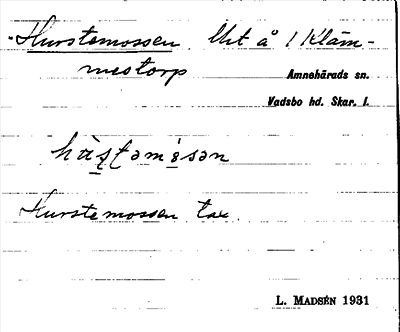 "Hurstemossen. Urt å 1 Kläm-
mestorp
Amnehärads sn.
Vadsbo hd. Skar. l.
Hurstemossen tax.
L. MADSÉN 1931